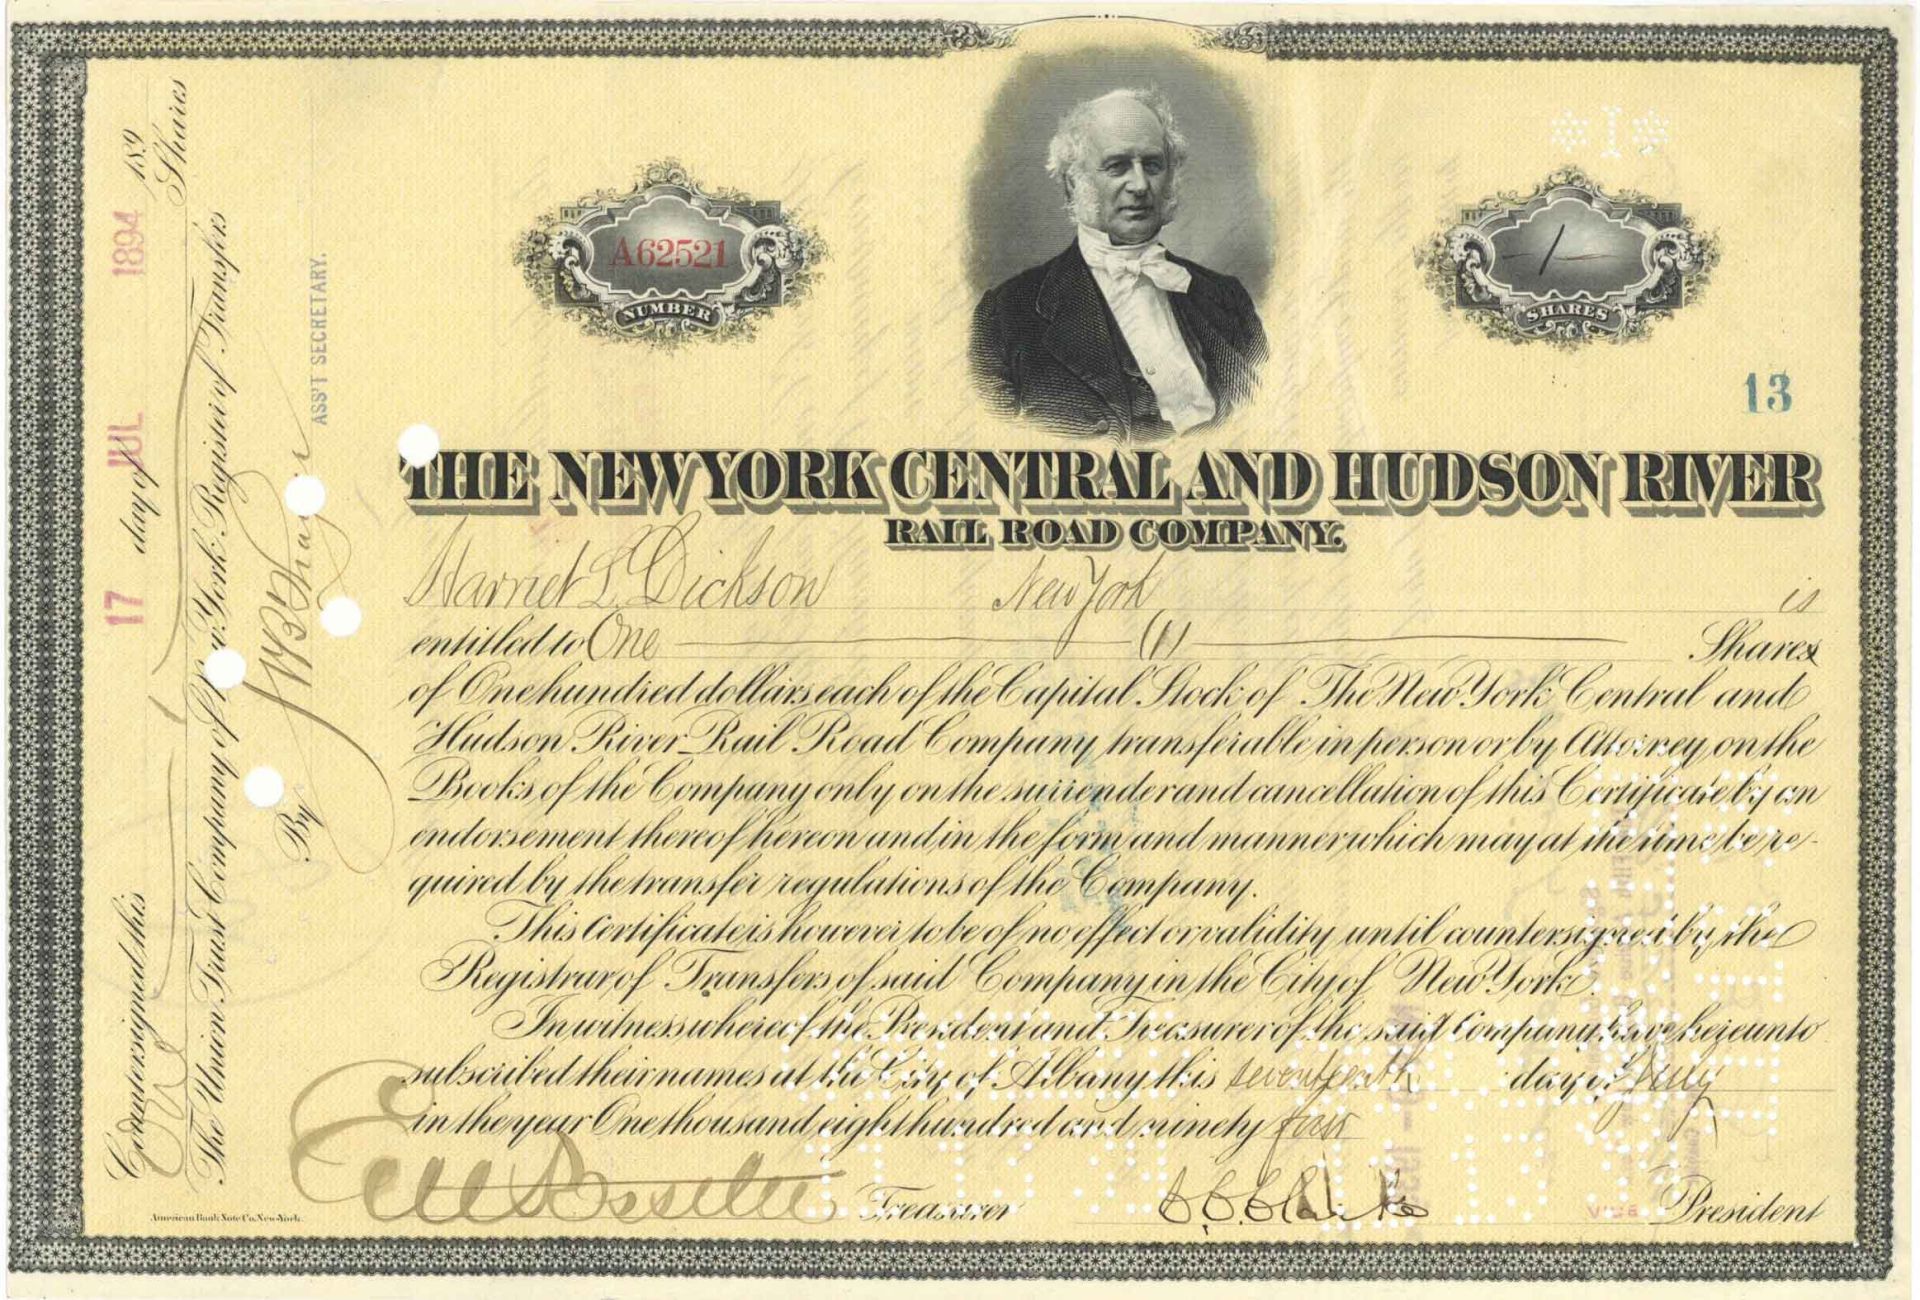 A62521
NUMBER
*1*
1
SHARES
13
THE NEW YORK CENTRAL AND HUDSON RIVER
RAIL ROAD COMPANY.
Harriet L. Dickson New York is
entitled to One (1) Shares
of One hundred dollars each of the Capital Stock of The New York Central and
Hudson River Rail Road Company, transferable in person or by Attorney, on the
Books of the Company only on the surrender and cancellation of this Certificate by an
endorsement thereof hereon and in the form and manner which may at the time be re-
quired by the transfer regulations of the Company.
This Certificate is however to be of no effect or validity until countersigned by the
Registrar of Transfers of said Company in the City of New York.
In witness whereof the President and Treasurer of the said Company have hereunto
subscribed their names at the City of Albany this seventeenth day of July
in the year One thousand eight hundred and ninety four
Treasurer President
American Bank Note Co. New York.
Countersigned this 17 day of JUL 1894 189
1 Shares
The Union Trust Company of New York, Register of Transfers
By
ASS'T SECRETARY.